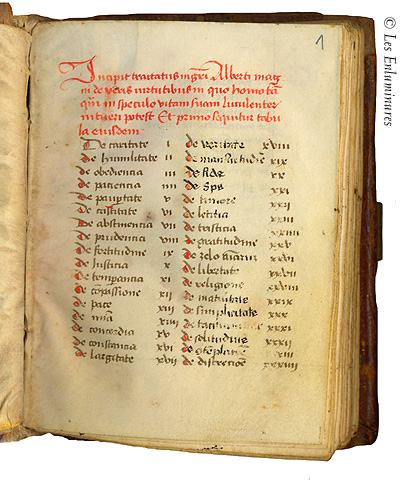 1
Incipit tractatus mgri Alberti mag
ni de veris virtutibus in quo homo tā
qm in speculo vitam suam luculenter
intueri potest Et primo sequitur tabu
la eiusdem
De caritate i
de humilitate ii
de obediencia iii
de paciencia iiii
de paupertate v
de castitate vi
de abstinencia vii
de prudencia viii
de fortitudine ix
de Iusticia x
de temperancia xi
de compassione xii
de pace xiii
de mīa xiiii
de concordia xv
de constancia xvi
de largitate xvii
de veritate xviii
de mansuetudine xix
de fide xx
de Spe xxi
de timore xxii
de leticia xxiii
de tristicia xxiiii
de gratitudine xxv
de zelo animarum xxvi
de libertate xxvii
de religione xxviii
de maturitate xxix
de simplicitate xxx
de taciturnitate xxxi
de solitudine xxxii
de contemplatione xxxiii
de discretione xxxiiii
© Les Enluminures